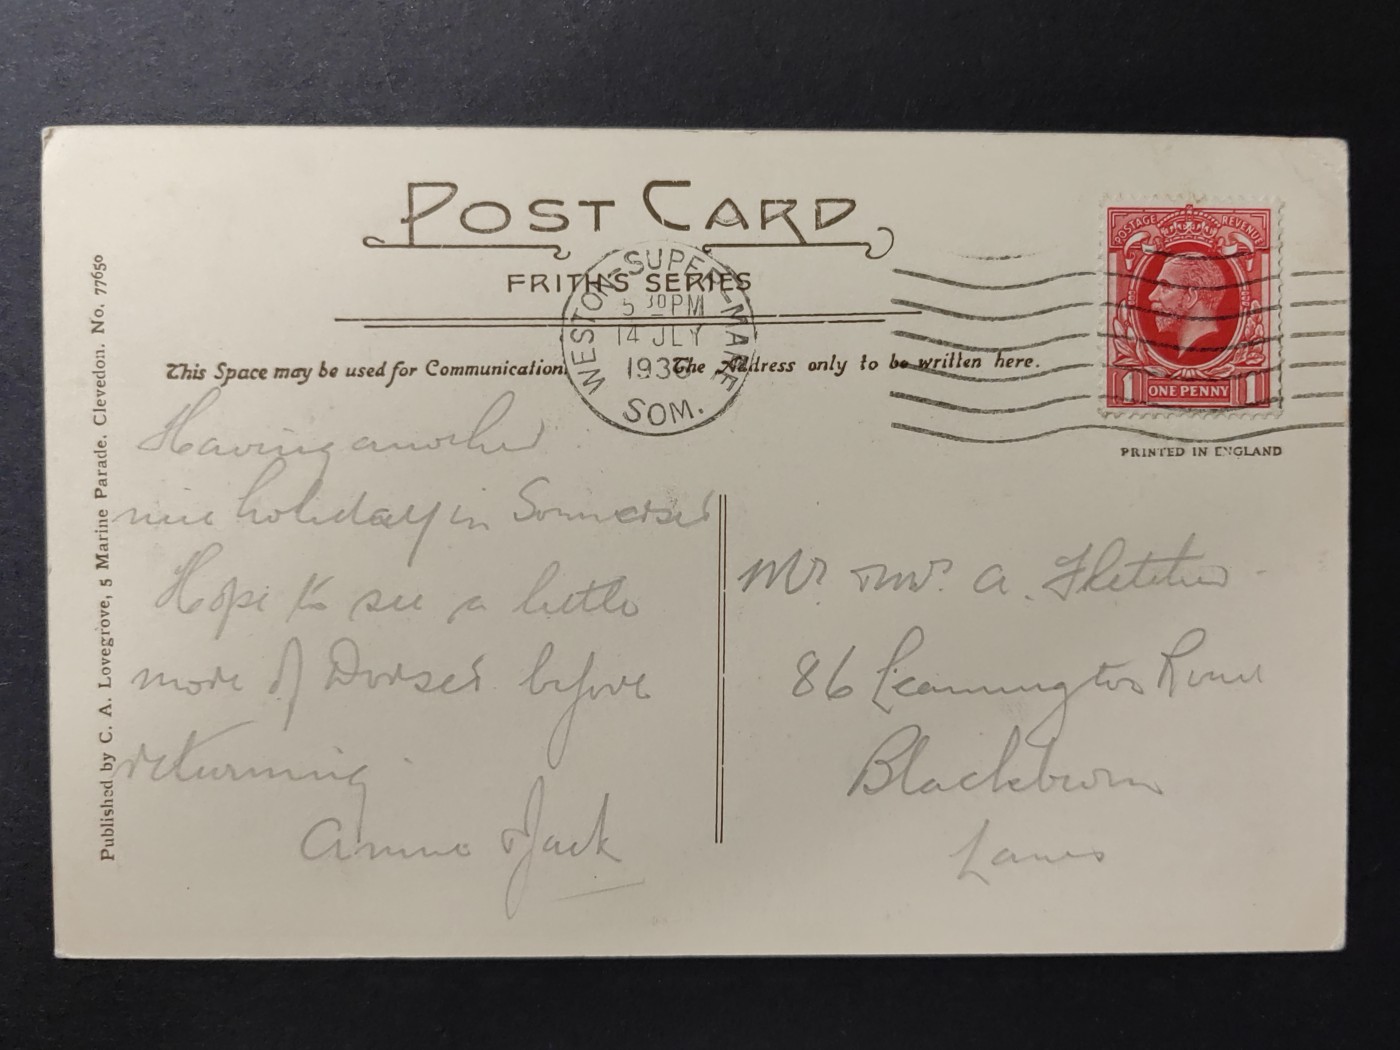 POST CARD
FRITH'S SERIES
This Space may be used for Communication.
The Address only to be written here.
WESTON-SUPER-MARE
5 30 PM
14 JLY
193
SOM.
POSTAGE REVENUE
1 ONE PENNY 1
PRINTED IN ENGLAND
Published by C. A. Lovegrove, 5 Marine Parade, Clevedon. No. 77650
Having another
nice holiday in Somerset
Hope to see a little
more of Dorset before
returning.
Annie & Jack
Mr. & Mrs. A. Fletcher
86 Leamington Road
Blackburn
Lancs